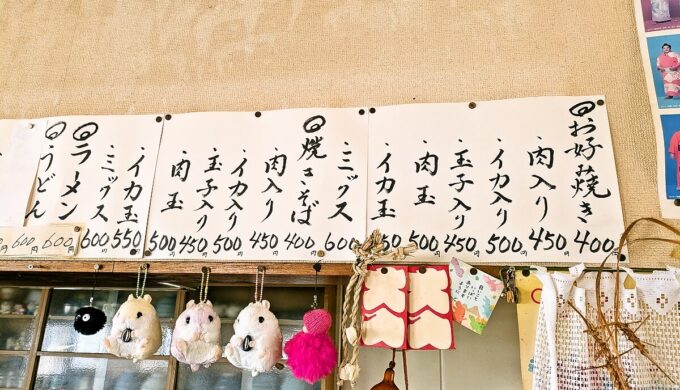 ◎お好み焼き 400
・肉入り 450
・イカ入り 500
・玉子入り 450
・肉玉 500
・イカ玉 550
・ミックス 600
◎焼きそば 400
・肉入り 450
・イカ入り 500
・玉子入り 450
・肉玉 500
・イカ玉 550
・ミックス 600
◎ラーメン 600円
◎うどん 600円